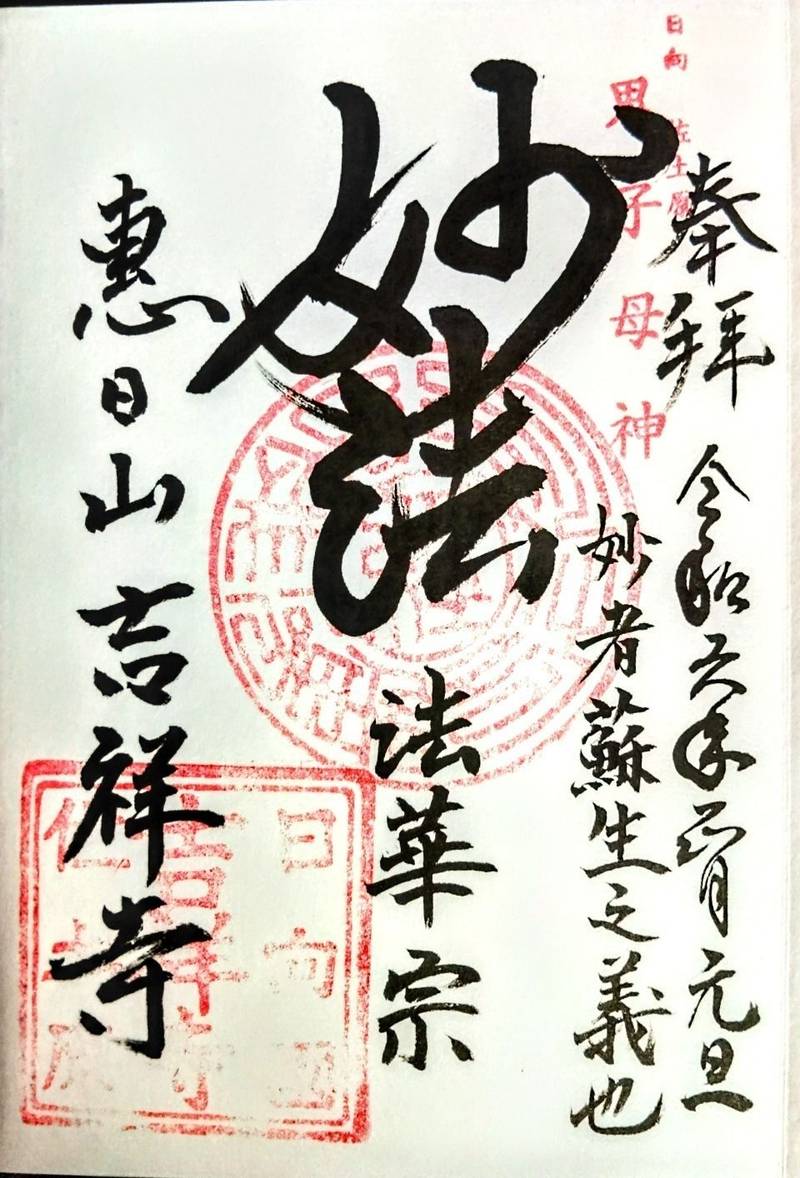 日向 佐土原
鬼子母神
奉拝 令和六年正月元旦
妙者蘇生之義也
妙法
法華宗
惠日山 吉祥寺
日向国
吉祥寺
佐土原